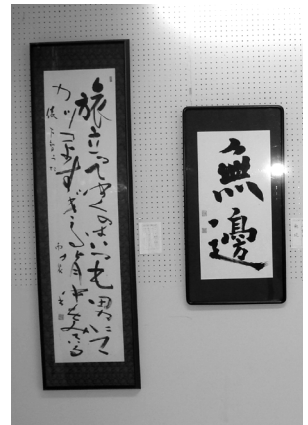 旅立ってゆくのはいつも男にて
カッコよすぎる背中見ている
無邊